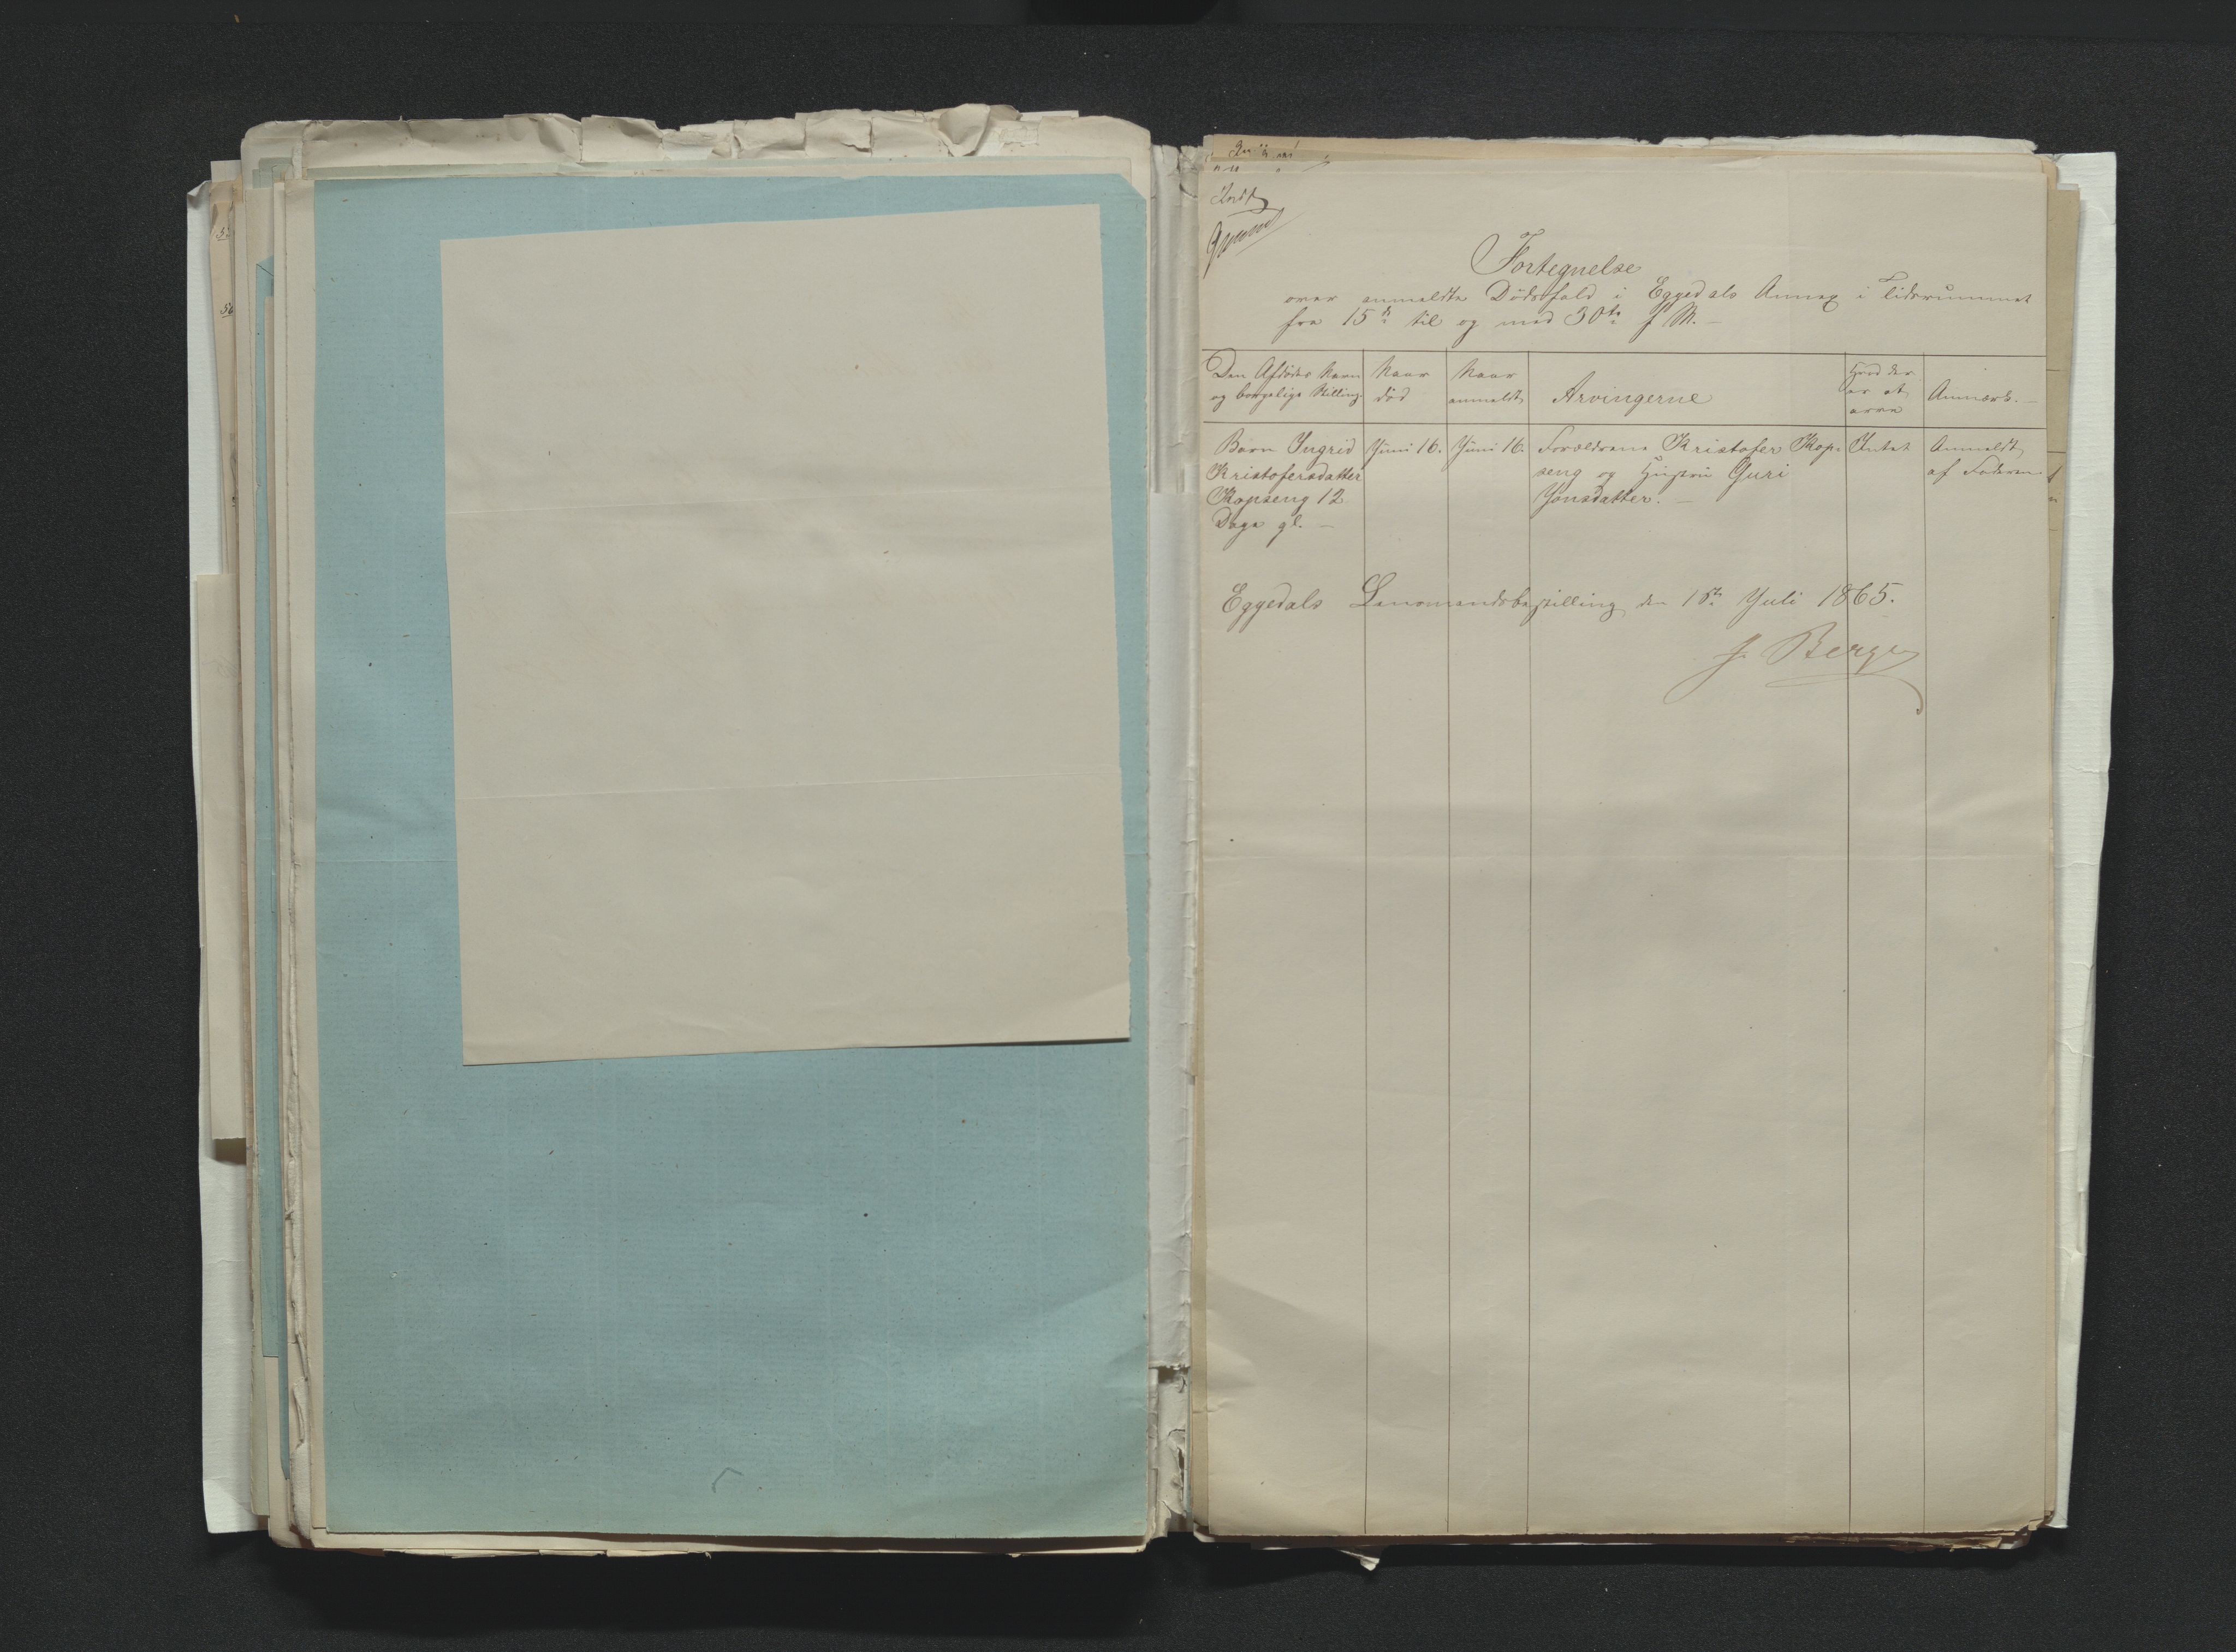 Fortegnelse
over anmeldte Dødsfald i Eggedals Annex i Tidsrummet
fra 15de til og med 30te f M. —
Den Afdødes Navn
og borgelige Stilling.
Naar
død
Naar
anmeldt
Arvingerne
Hvad der
er at
arve
Anmærk. —
Barn Ingrid
Kristofersdatter
Kopseng 12
Dage gl. —
Juni 16.
Juni 16.
Forældrene Kristofer Kop-
seng og Hustru Guri
Jonsdatter. —
Intet
Anmeldt
af Faderen
Eggedals Lensmandsbestilling den 15de Juli 1865.
J. Berge